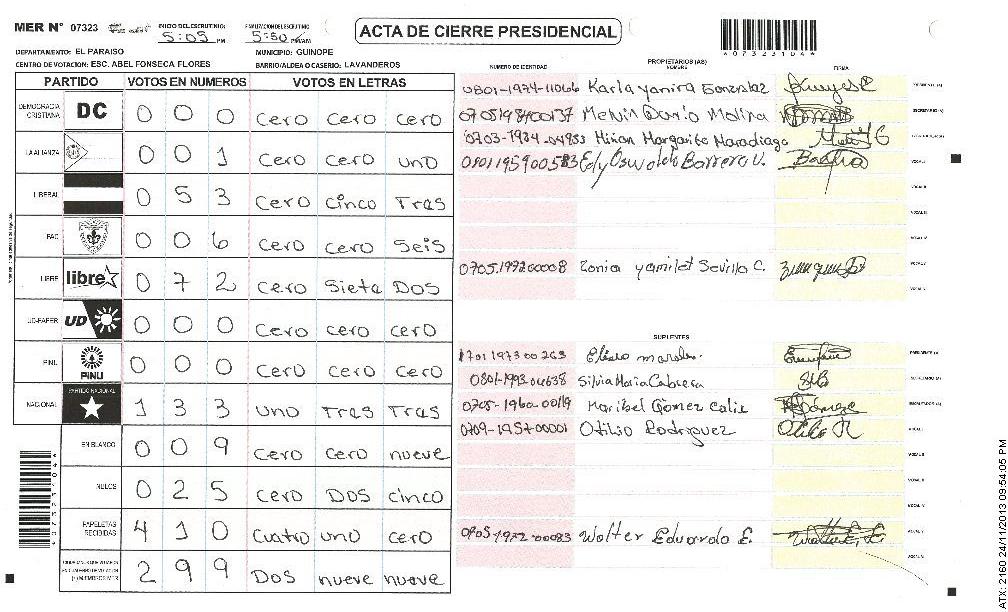 MER N° 07323 INICIO DEL ESCRUTINIO: 5:05 PM FINALIZACION DEL ESCRUTINIO 5:50 PM/AM
ACTA DE CIERRE PRESIDENCIAL
40732310 4
DEPARTAMENTO: EL PARAISO MUNICIPIO: GUINOPE
CENTRO DE VOTACION: ESC. ABEL FONSECA FLORES BARRIO/ALDEA O CASERIO: LAVANDEROS
PARTIDO VOTOS EN NUMEROS VOTOS EN LETRAS
DEMOCRACIA CRISTIANA DC 0 0 0 cero cero cero
LA ALIANZA 0 0 1 cero cero uno
LIBERAL 0 5 3 cero cinco Tras
PAC 0 0 6 cero cero seis
LIBRE libre 0 7 2 cero sieta Dos
UD-FAPER UD 0 0 0 cero cero cero
PINU PINU 0 0 0 cero cero cero
NACIONAL PARTIDO NACIONAL 1 3 3 uno Tras Tras
EN BLANCO 0 0 9 cero cero nueve
NULOS 0 2 5 cero Dos cinco
PAPELETAS RECIBIDAS 4 1 0 cuatro uno cero
2 9 9 Dos nueve nueve
NUMERO DE IDENTIDAD PROPIETARIOS (AS) NOMBRE FIRMA
0801-1974-11066 Karla yanira Gonzalez PRESIDENTE (A)
0705198400137 Melvin Dario Molina SECRETARIO (A)
0703-1984-04953 Mirian Margarita Maradiaga
0801195900583 Edy Oswaldo Barrera V. VOCAL I
VOCAL II
VOCAL III
VOCAL IV
0705.197200008 Zonia yamilet Sevilla C. VOCAL V
SUPLENTES
1701197300263 Eliseo morales. PRESIDENTE (A)
0801-1993-04638 Silvia Maria Cabrera SECRETARIO (A)
0705-1960-00119 Maribel Gomez Calix ESCRUTADOR (A)
0709-1957-00001 Otilio Rodriguez VOCAL I
0705-1972-00083 Walter Eduardo E.
ATX: 2160 24/11/2013 09:54:05 PM